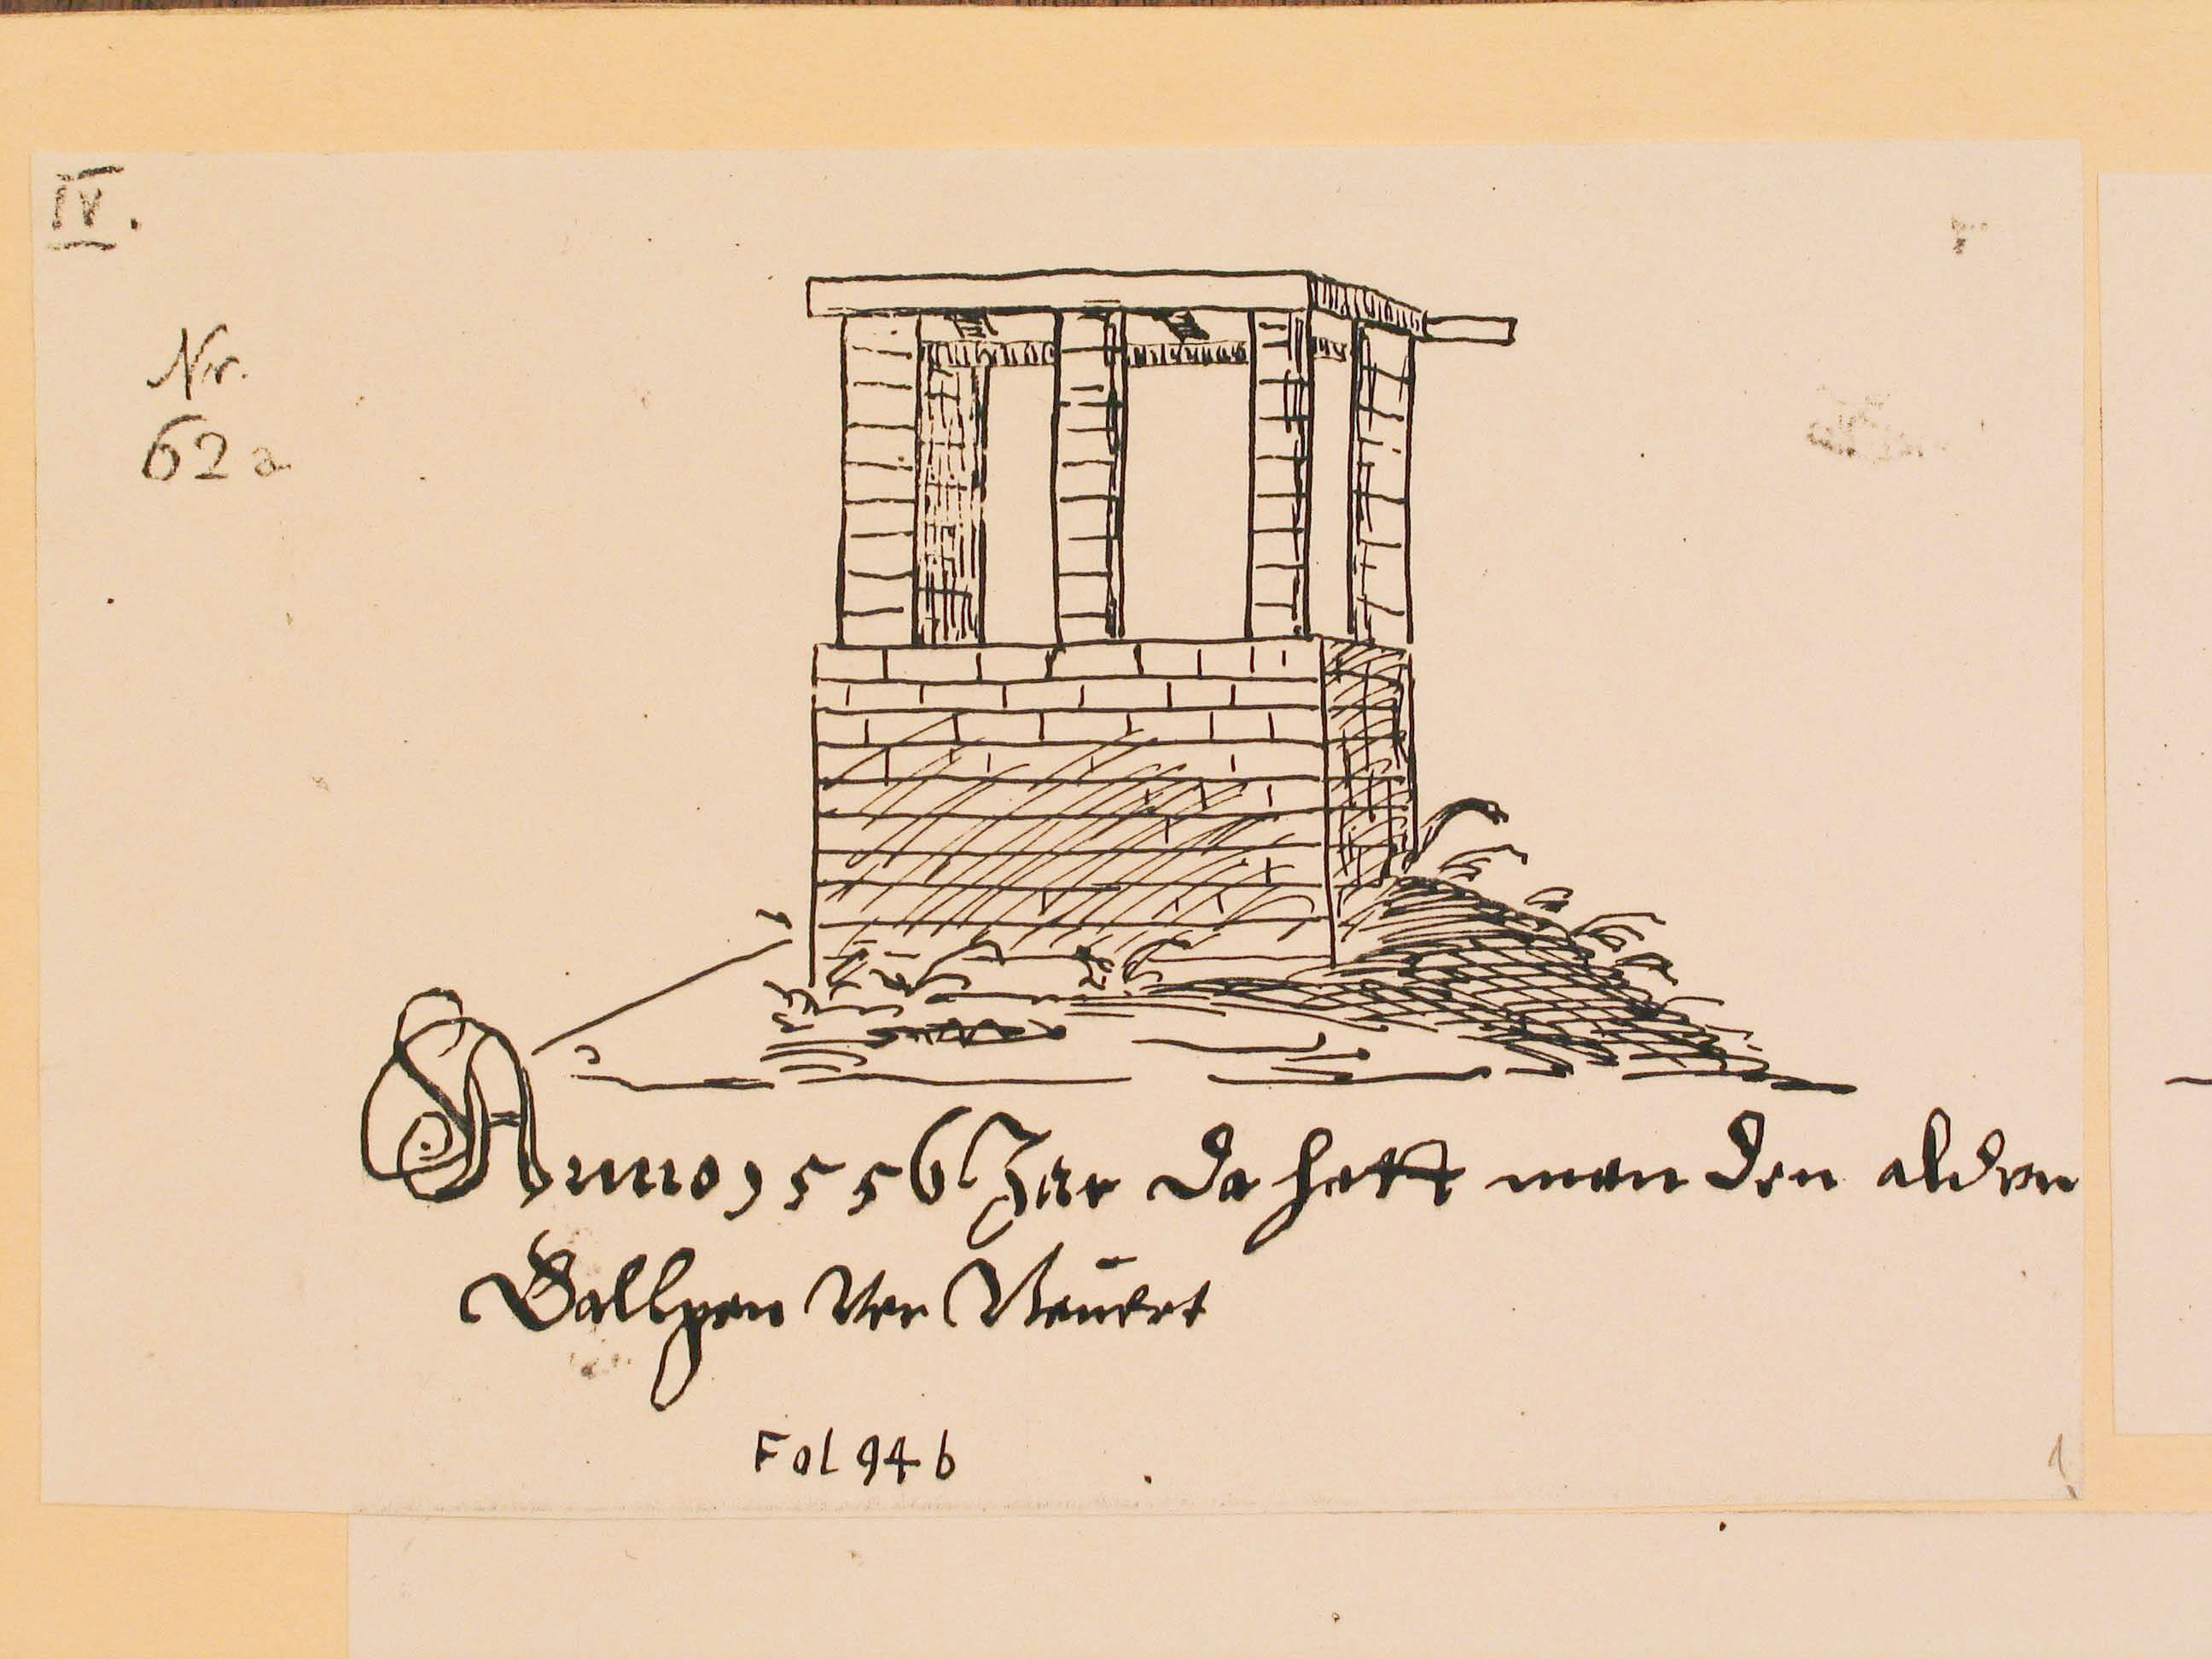 IV.
Nr.
62a
Anno 1556 Jar da hatt man den alden
Gallgen Ver Neuert
Fol 94 b
1